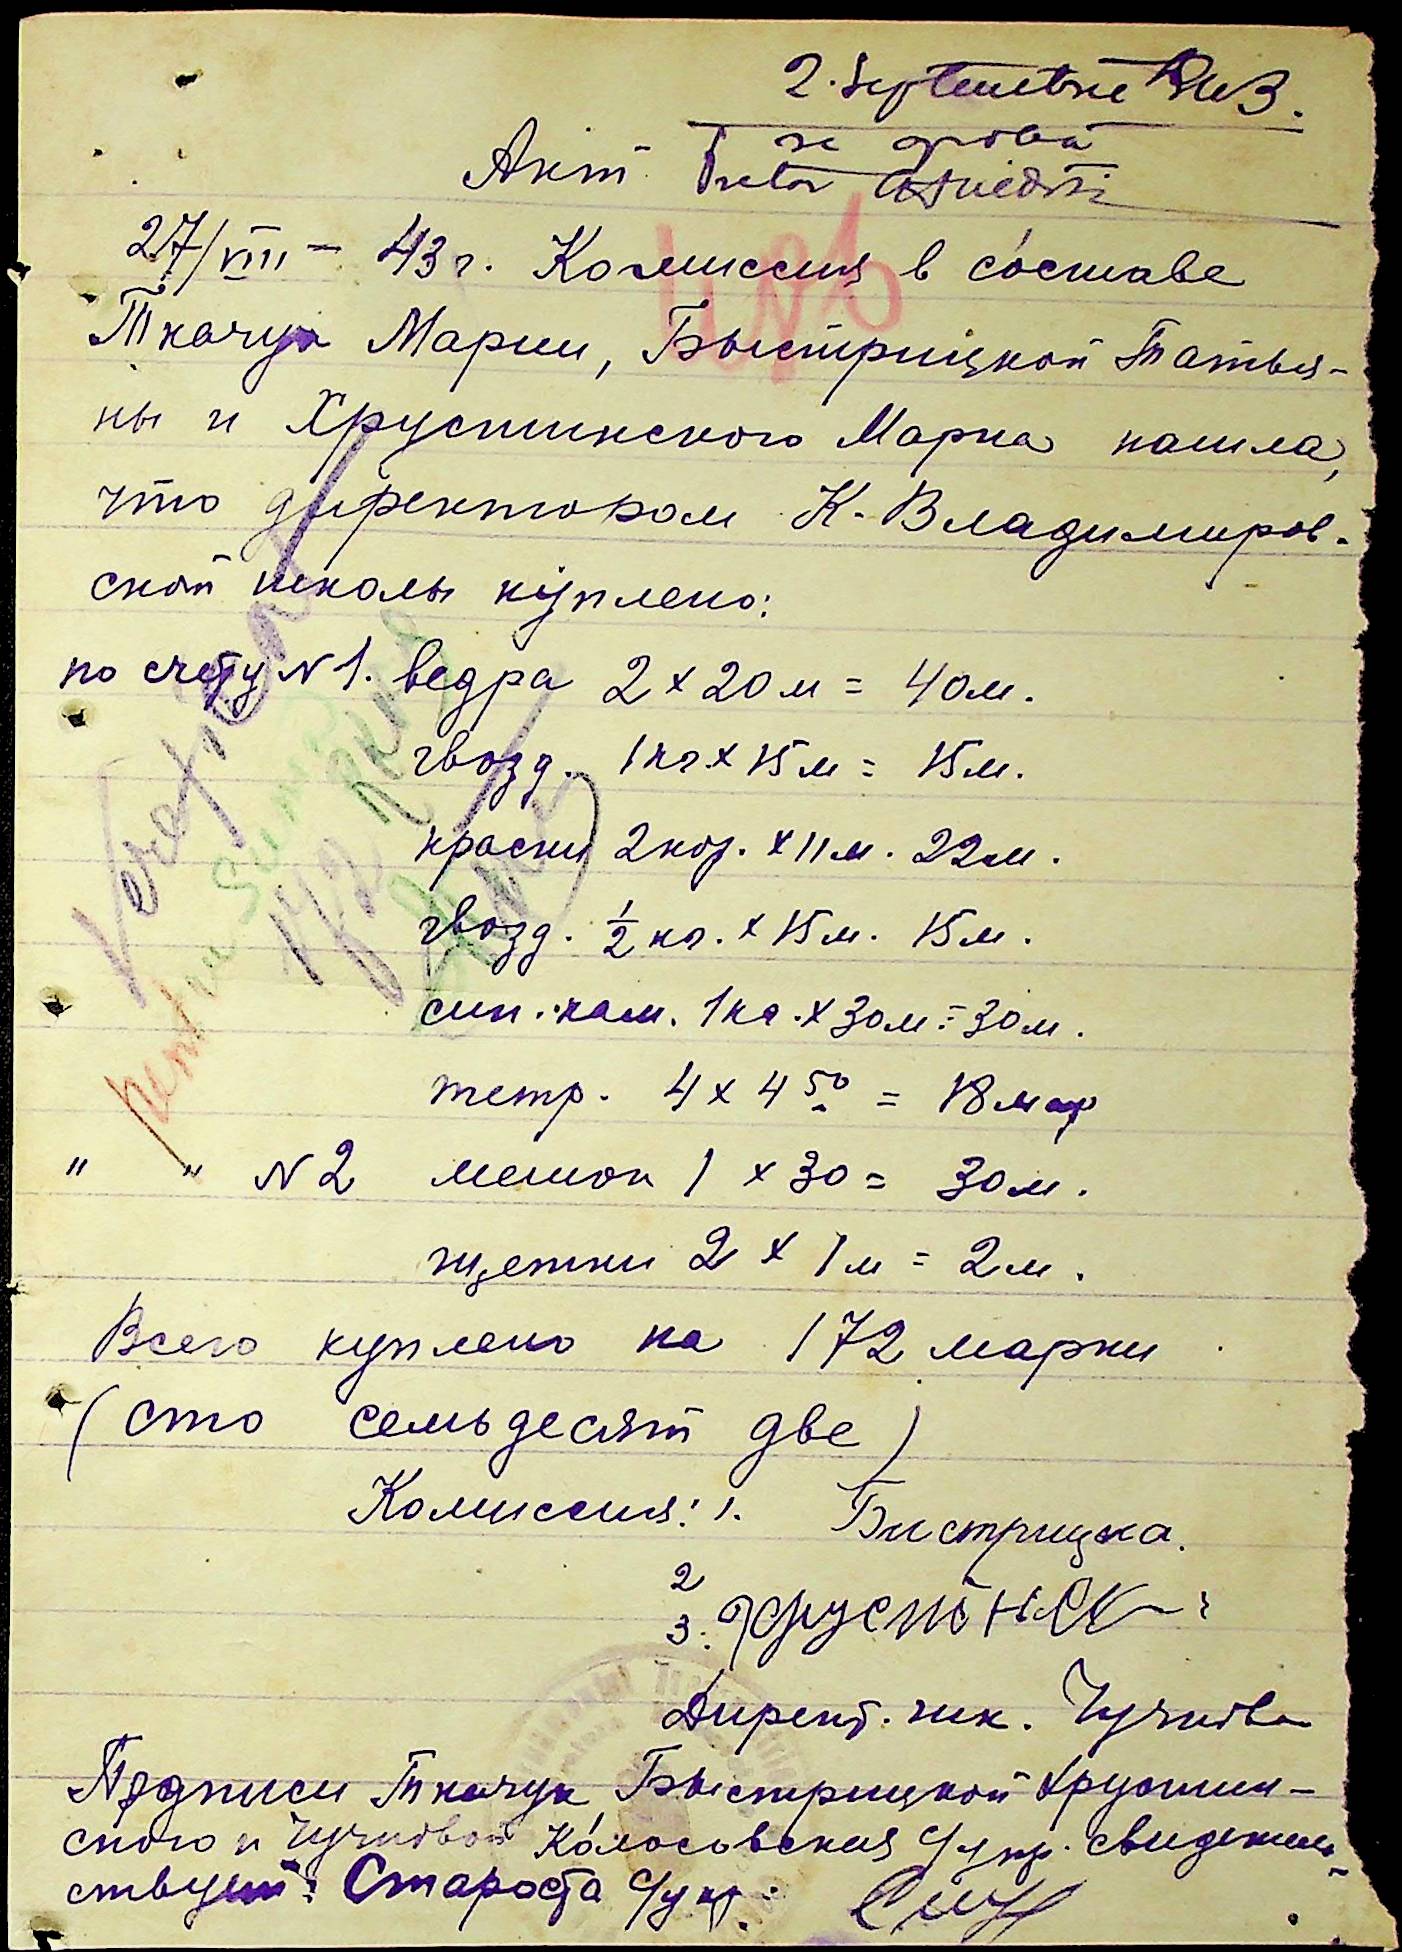 2. Septembrie 1943.
se aprobă
Акт Pretor
27/VIII – 43 г. Комиссия в составе
Ткачук Марии, Быстрицкой Татья-
ны и Хрустинского Марка нашла,
что директором К-Владимиров-
ской школы куплено:
по счету N 1. ведра 2 x 20 м = 40 м.
гвозд. 1 кг x 15 м = 15 м.
краски 2 кор. x 11 м. 22 м.
гвозд. ½ кг. x 15 м. 15 м.
син. кам. 1 кг. x 30 м = 30 м.
тетр. 4 x 4 50 = 18 мар
" " N 2 мешок 1 x 30 = 30 м.
щетки 2 x 1 м = 2 м.
Всего куплено на 172 марки
(сто семьдесят две)
Комиссия: 1. Бистрицка.
2
3.
Директ. шк. Чучкова
Подписи Ткачук Быстрицкой Хрустин-
ского и Чучковой Колосовская С/упр. свидетель-
ствует: Староста С/упр.
Verificat
pentru suma
172 RKKS